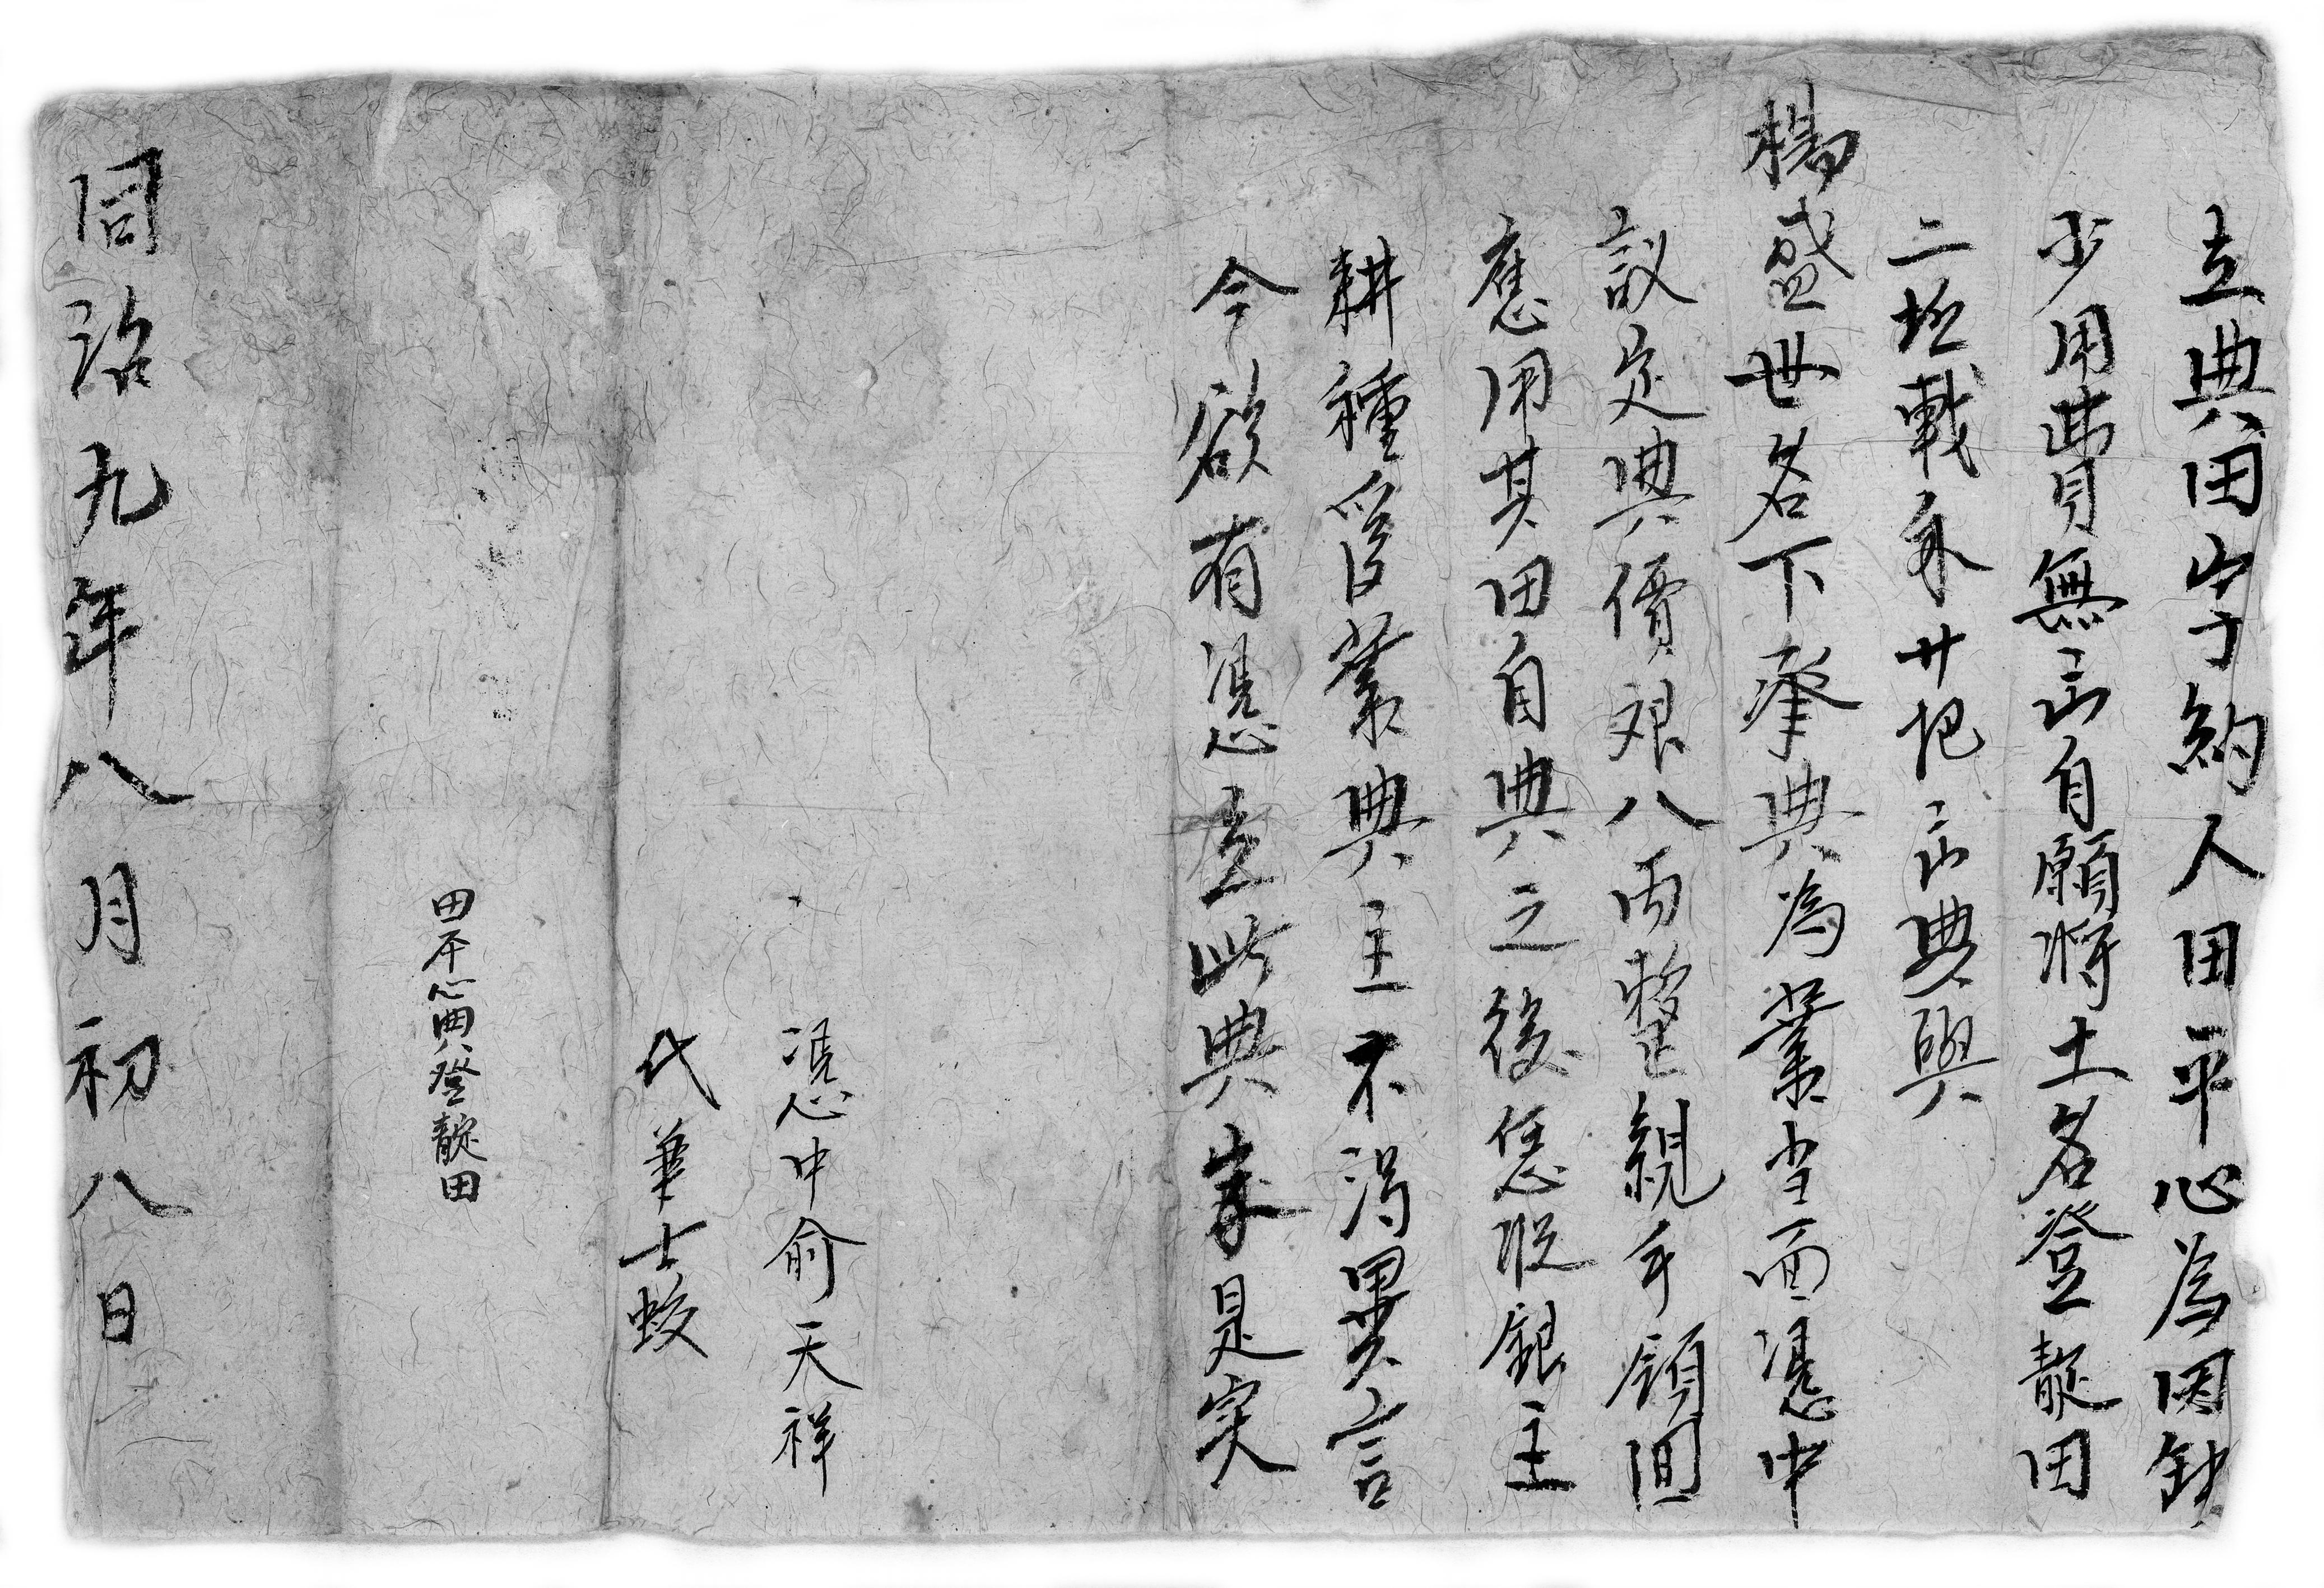 立典田字約人田平心為因缺
少用費無出自願將土名登靛田
二坵載禾廿把出典與
楊盛世名下承典為業当面憑中
議定典價艮八両整親手領回
應用其田自典之後任憑銀主
耕種管業典主不淂異言
今欲有憑立此典字是实
憑中俞天祥
代筆士蛟
田平心典登靛田
同治九年八月初八日